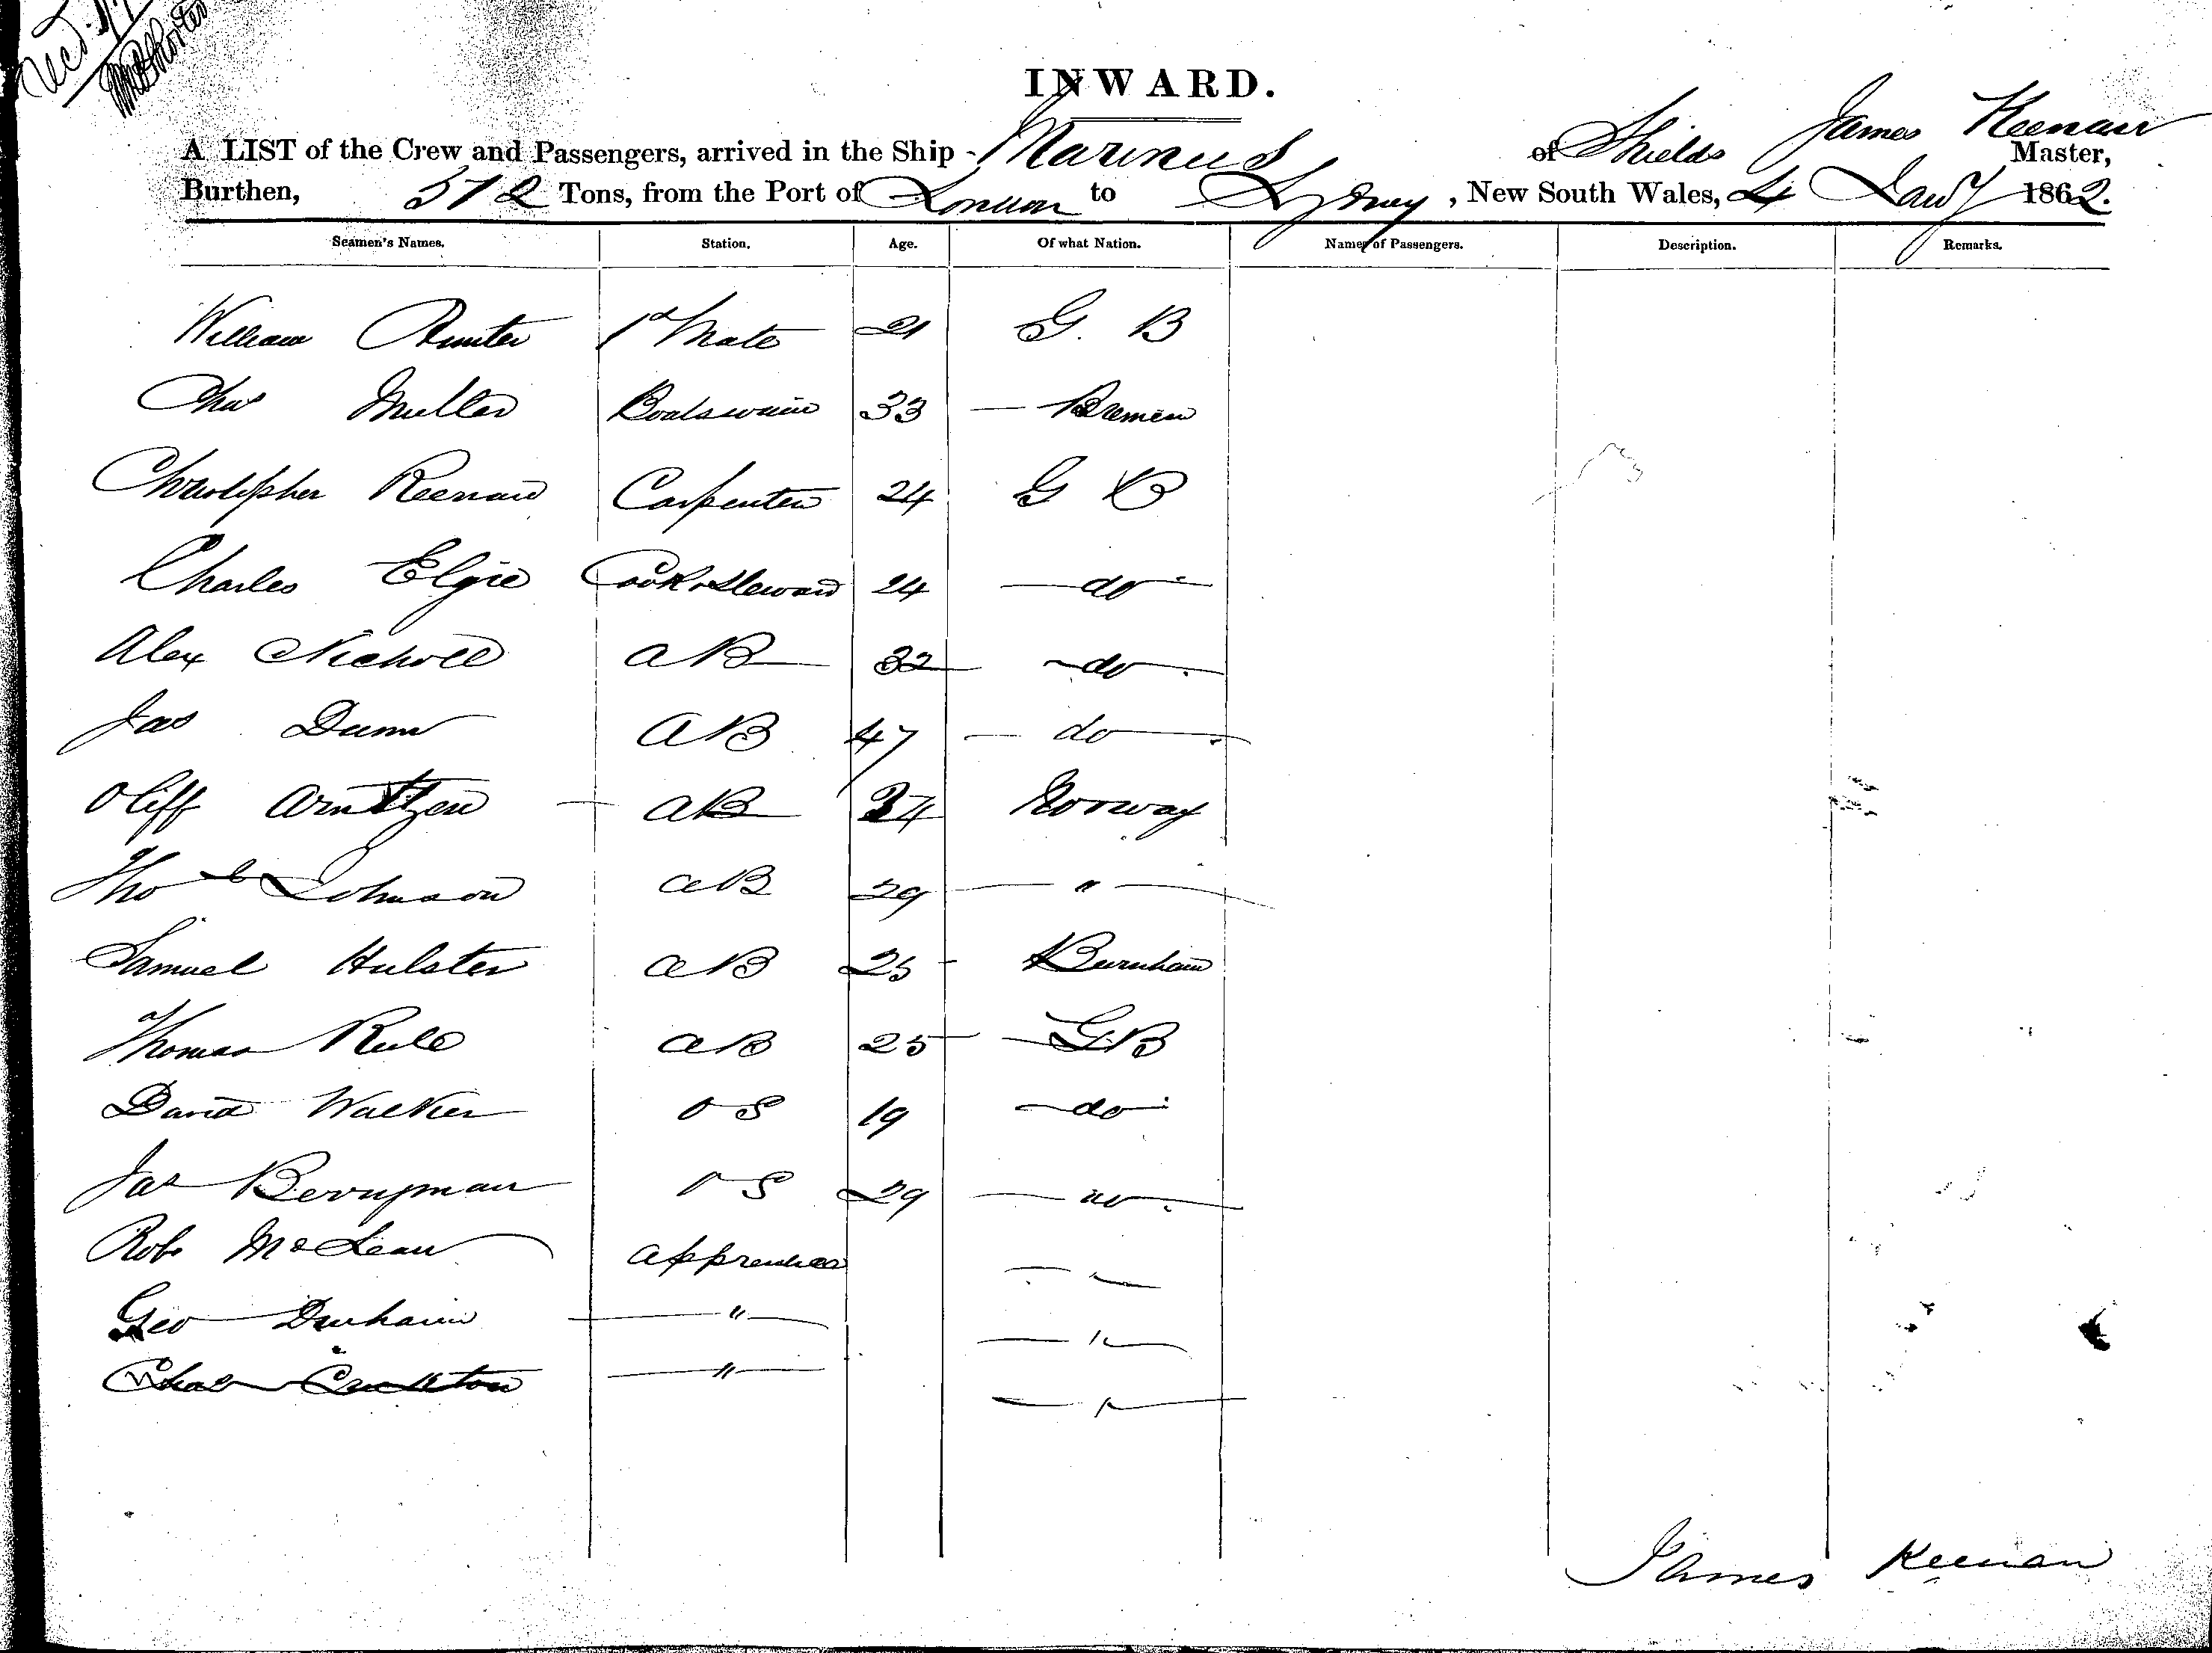 INWARD.
A LIST of the Crew and Passengers, arrived in the Ship Marinus of Shields James Keenan Master,
Burthen, 372 Tons, from the Port of London to Sydney, New South Wales, 4 Jany 1862.
Seamen's Names. Station. Age. Of what Nation. Names of Passengers. Description. Remarks.
William 1st Mate 21 G. B
Chas Muller Boatswain 33 — Bremen
Christopher Keenan Carpenter 24 G B
Charles Elgie Cook & Steward 24 — do —
Alex Nicholl AB 32 — do —
Jas Dunn AB 47 — do —
Oliff Arntzen — AB 34 Norway
Thos Johnson AB 29 — " —
Samuel Hulster AB 25 - Burnham
Thomas Rule AB 25 — GB
David Walker OS 19 — do
Jas Berryman OS 29 — do —
Robt McLean Apprentice — " —
Geo Denham — " — — " —
Chas — " — — " —
James Keenan